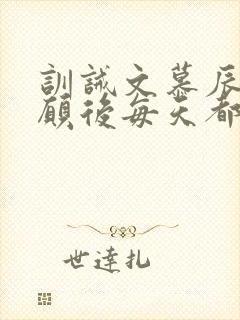 訓誡文慕辰
願後每天都
世達扎